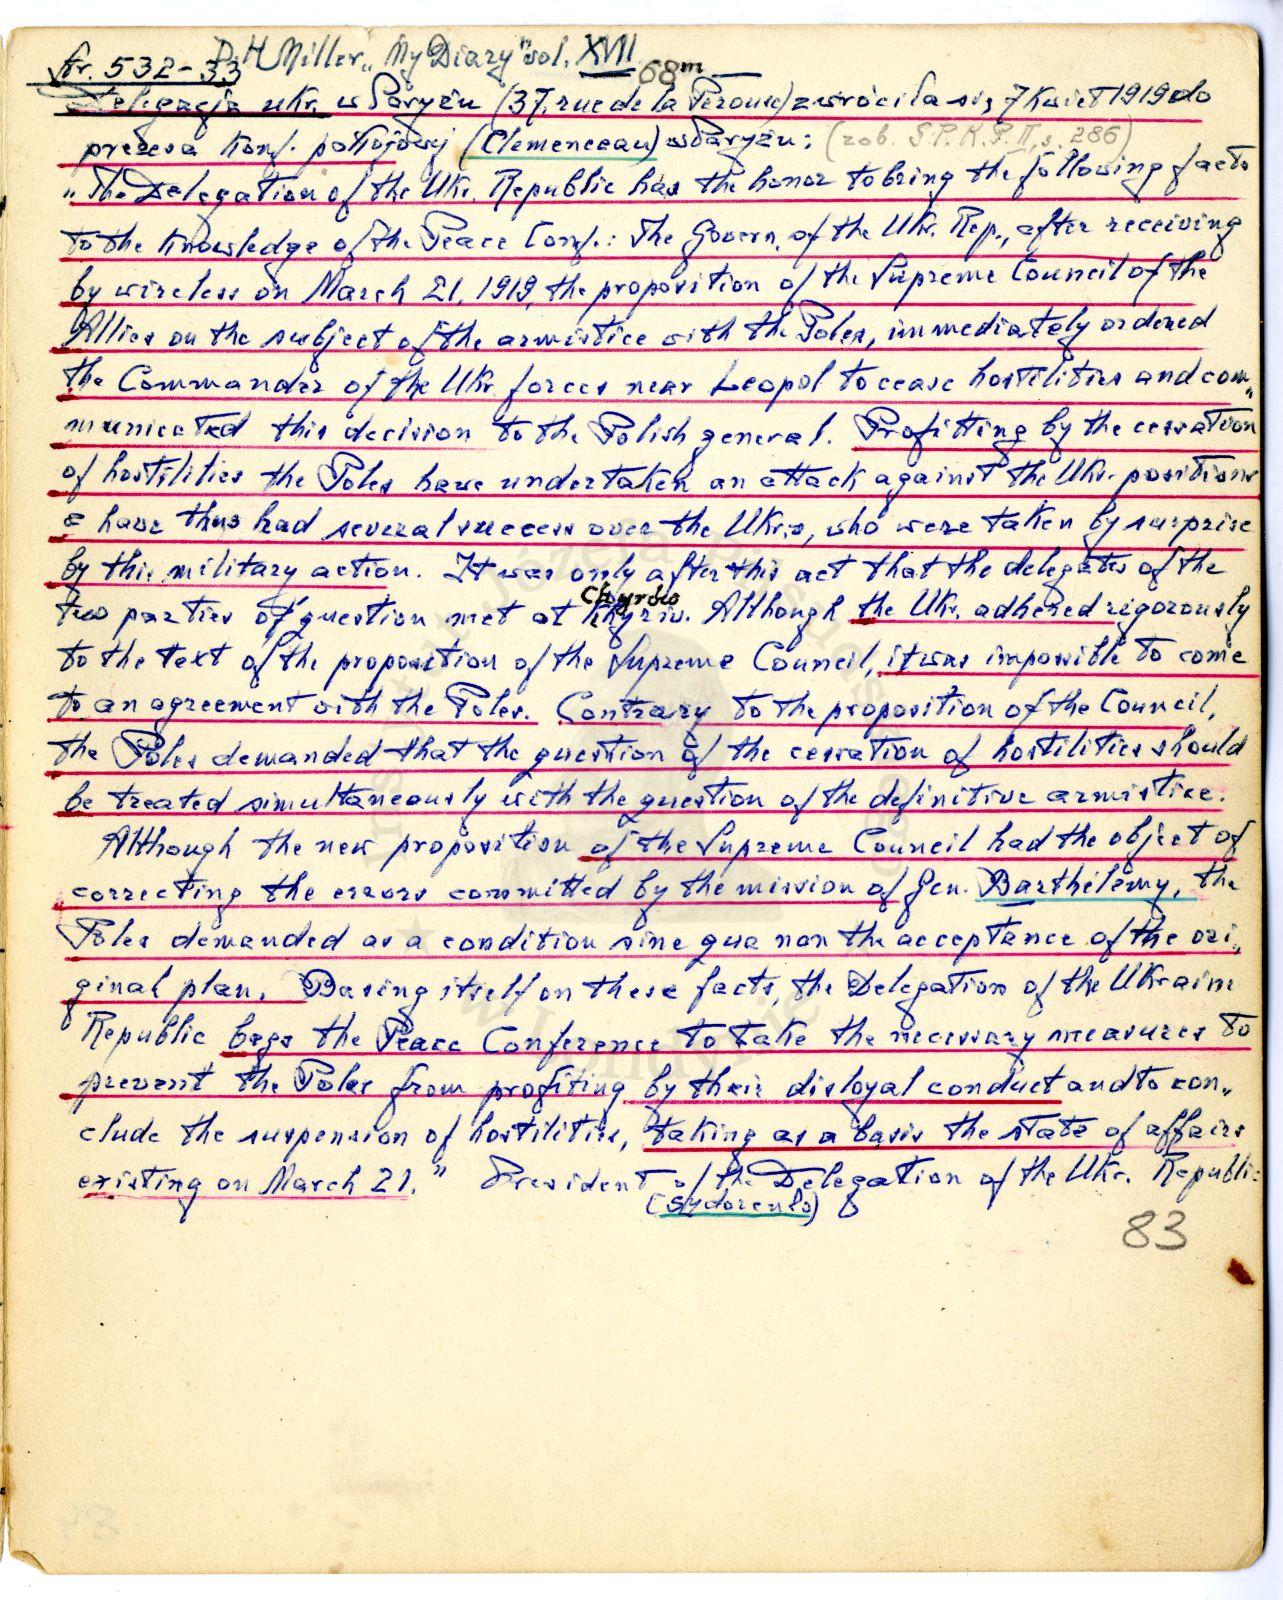 D.H Miller „My Diary" vol. XVII 68m
Str. 532-33
Delegacja ukr. w Paryżu (37, rue de la Perouse) zwróciła się 7 kwiet 1919 do
prezesa Konf. pokojowej (Clemenceau) w Paryżu: (zob. S.P.K.P. II, s. 286)
„The Delegation of the Ukr. Republic has the honor to bring the following facts
to the knowledge of the Peace Conf.: The Govern. of the Ukr. Rep., after receiving
by wireless on March 21, 1919, the proposition of the Supreme Council of the
Allies on the subject of the armistice with the Poles, immediately ordered
the Commander of the Ukr. forces near Leopol to cease hostilities and com„
municated this decision to the Polish general. Profitting by the cessation
of hostilities the Poles have undertaken an attack against the Ukr. positions
& have thus had several success over the Ukr.s, who were taken by surprise
by this military action. It was only after this act that the delegates of the
Chyrów
two parties of question met at Khyriv. Although the Ukr. adhered rigorously
to the text of the proposition of the Supreme Council, it was impossible to come
to an agreement with the Poles. Contrary to the proposition of the Council,
the Poles demanded that the question of the cessation of hostilities should
be treated simultaneously with the question of the definitive armistice.
Although the new proposition of the Supreme Council had the object of
correcting the errors committed by the mission of Gen. Barthélemy, the
Poles demanded as a condition sine qua non the acceptance of the ori„
ginal plan. Basing itself on these facts, the Delegation of the Ukrain
Republic begs the Peace Conference to take the necessary measures to
prevent the Poles from profiting by their disloyal conduct and to con„
clude the suspension of hostilities, taking as a basis the state of affairs
existing on March 21." President of the Delegation of the Ukr. Republic
(Sydorenko)
83